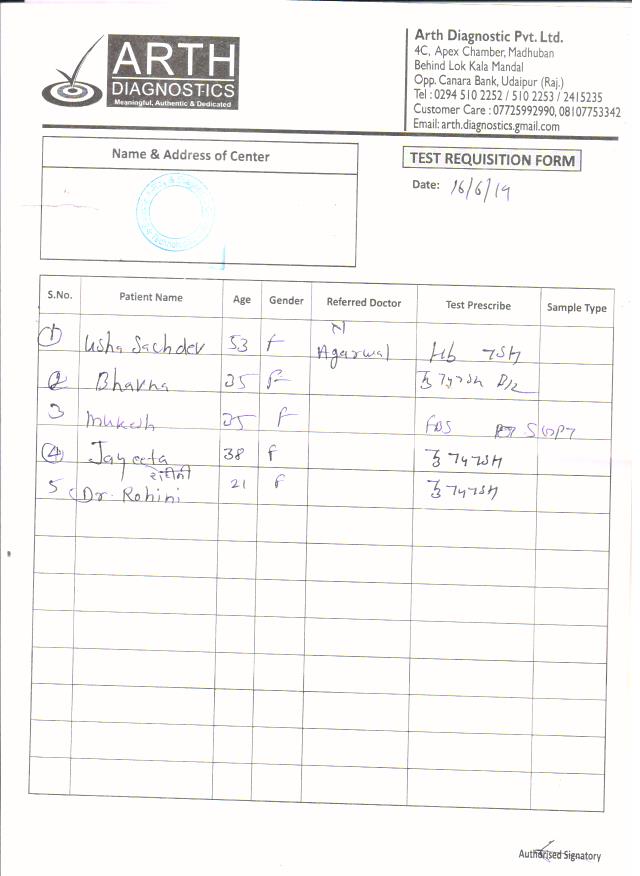 ARTH
DIAGNOSTICS
Meaningful, Authentic & Dedicated
Arth Diagnostic Pvt. Ltd.
4C, Apex Chamber, Madhuban
Behind Lok Kala Mandal
Opp. Canara Bank, Udaipur (Raj.)
Tel : 0294 510 2252 / 510 2253 / 2415235
Customer Care : 07725992990, 08107753342
Email: arth.diagnostics.gmail.com
Name & Address of Center
TEST REQUISITION FORM
Date: 16/6/19
S.No. Patient Name Age Gender Referred Doctor Test Prescribe Sample Type
N
1 Usha Sachdev 53 F Agarwal Hb TSH
2 Bhavna 25 F T3 T4 TSH
3 Mukesh 25 F FBS SGPT
4 Jayeeta 38 F T3 T4 TSH
5 Dr. Rohini 21 F T3 T4 TSH
Authorised Signatory